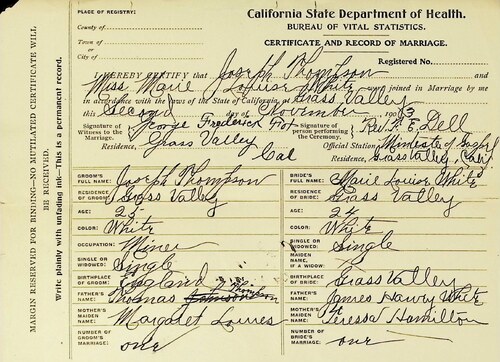 PLACE OF REGISTRY:
County of
Town of
or
City of
California State Department of Health.
BUREAU OF VITAL STATISTICS.
CERTIFICATE AND RECORD OF MARRIAGE.
Registered No.
I HEREBY CERTIFY that Joseph Thompson and
Miss Marie Louise White were joined in Marriage by me
in accordance with the laws of the State of California, at Grass Valley
this Second day of November 190
Signature of Witness to the Marriage, George Frederick Fox
Signature of person performing the Ceremony, Rev. E. Dell
Residence, Grass Valley Cal
Official Station, Minister of Gospel
Residence, Grass Valley, Cal.
GROOM'S FULL NAME: Joseph Thompson
BRIDE'S FULL NAME: Marie Louise White
RESIDENCE OF GROOM: Grass Valley
RESIDENCE OF BRIDE: Grass Valley
AGE: 23
AGE: 24
COLOR: White
COLOR: White
OCCUPATION: Miner
SINGLE OR WIDOWED: Single
SINGLE OR WIDOWED: Single
MAIDEN NAME, IF A WIDOW:
BIRTHPLACE OF GROOM: England
BIRTHPLACE OF BRIDE: Grass Valley
FATHER'S NAME: Thomas Thompson
FATHER'S NAME: James Henry White
MOTHER'S MAIDEN NAME: Margaret
MOTHER'S MAIDEN NAME: Teressa Hamilton
NUMBER OF GROOM'S MARRIAGE: one
NUMBER OF BRIDE'S MARRIAGE: one
MARGIN RESERVED FOR BINDING—NO MUTILATED CERTIFICATE WILL
BE RECEIVED.
Write plainly with unfading ink—This is a permanent record.